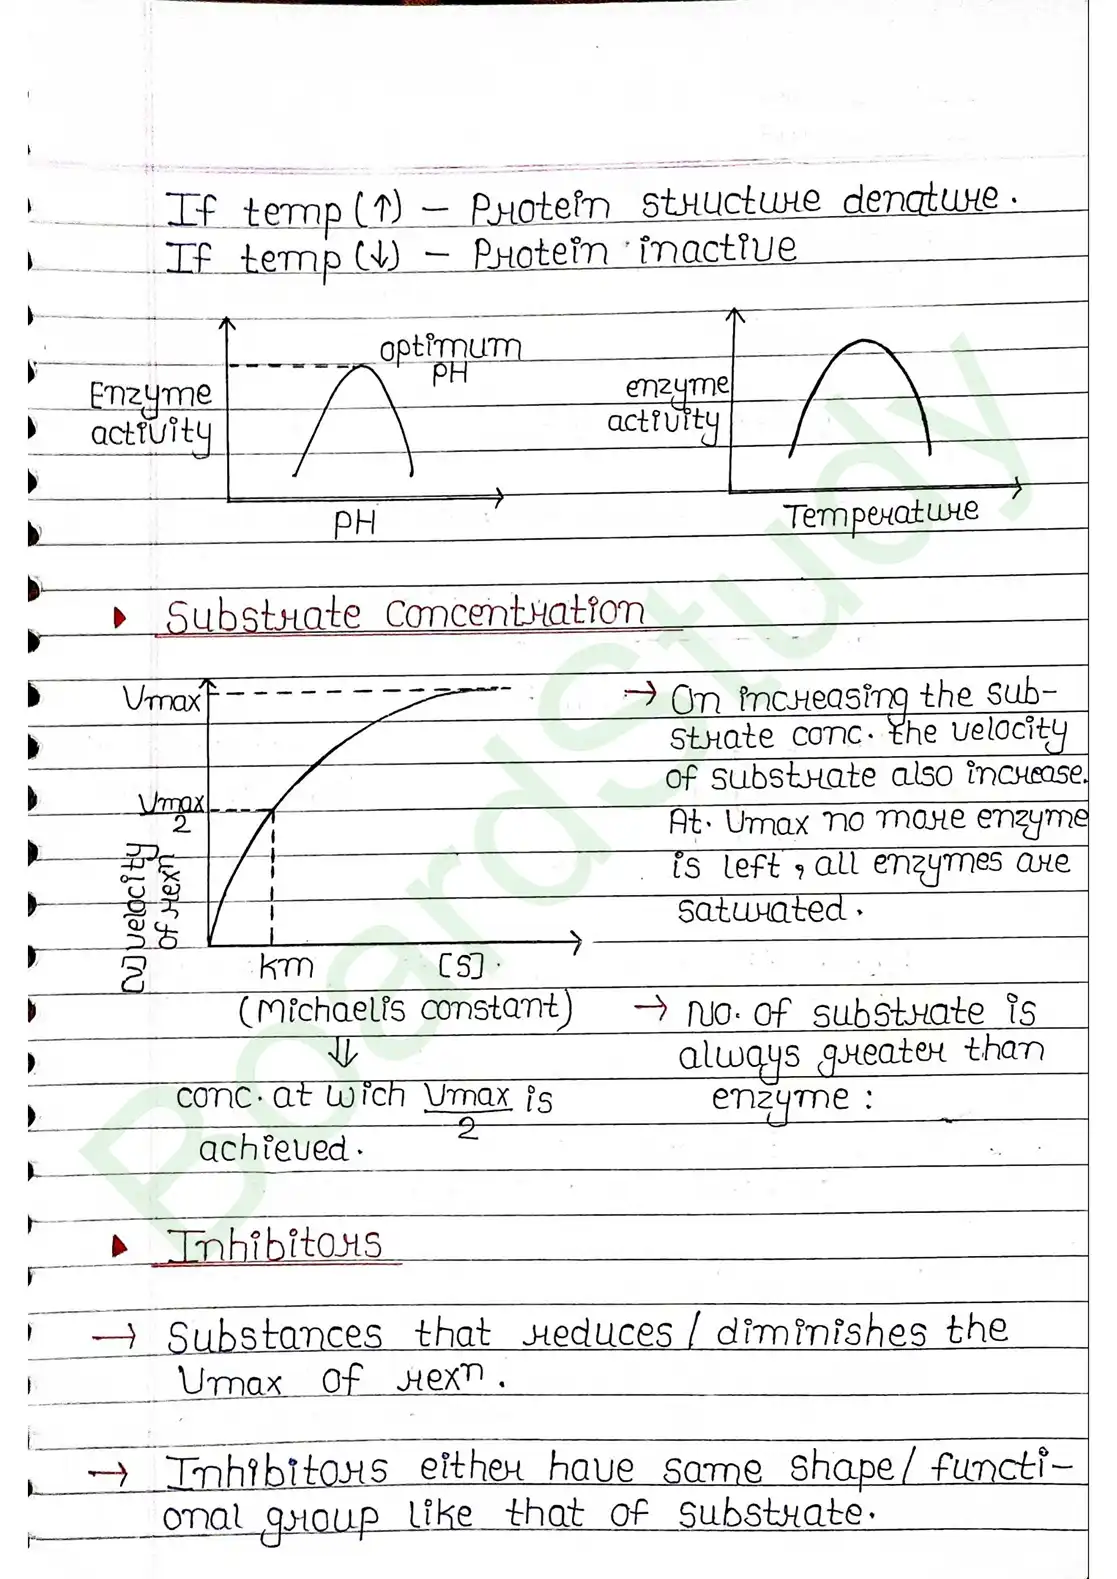 If temp (↑) – Protein structure denature.
If temp (↓) – Protein inactive
optimum
PH
Enzyme
activity
PH
enzyme
activity
Temperature
Substrate Concentration
Vmax
Vmax
2
[V] velocity
of rexn
km
[S].
(Michaelis constant)
⇓
conc. at wich Vmax is
2
achieved.
→ On increasing the sub-
strate conc. the velocity
of substrate also increase.
At. Vmax no more enzyme
is left, all enzymes are
saturated.
→ No. of substrate is
always greater than
enzyme :
Inhibitors
→ Substances that reduces / diminishes the
Vmax of rexn.
→ Inhibitors either have same shape / functi-
onal group like that of substrate.
BoardStudy